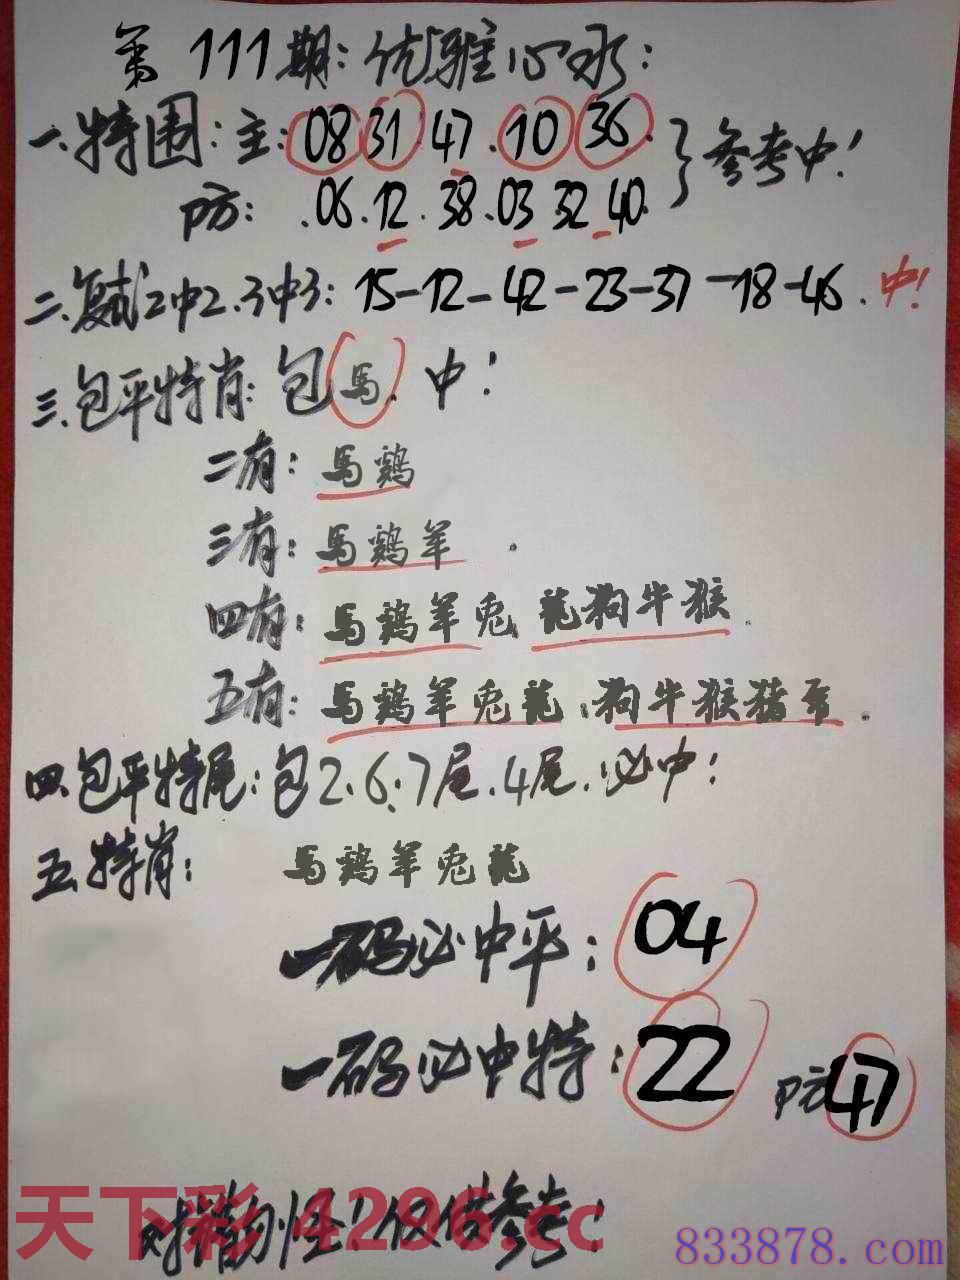 第111期:优雅心水:
一.特围:主:08 31 47.10 36.
防:.06.12.38.03 32 40.
}参考中!
二.复试2中2.3中3:15-12-42-23-37-18-46.中!
三.包平特肖:包馬.中!
二有:馬鷄
三有:馬鷄羊.
四有:馬鷄羊兔 龍狗牛猴
五有:馬鷄羊兔龍.狗牛猴猪.
四.包平特尾:包2.6.7尾.4尾.必中!
五.特肖:馬鷄羊兔龍
一码必中平:04
一码必中特:22 防47
对错勿怪!仅供参考!
天下彩 4296.cc
833878.com